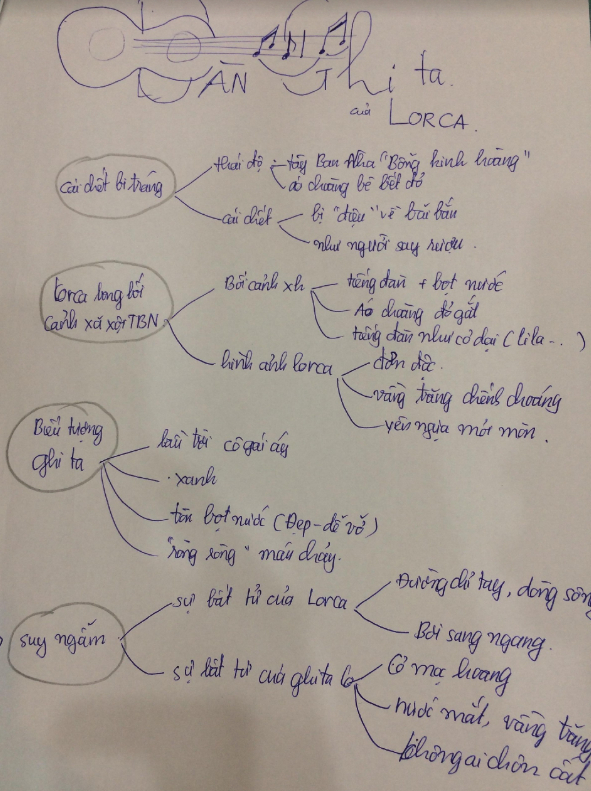 ĐÀN Ghi ta
của LORCA.
cái chết bi tráng
thái độ
tây Ban Nha "Bỗng kinh hoàng"
áo choàng bê bết đỏ
cái chết
bị "điệu" về bãi bắn
như người say rượu.
Lorca trong bối
cảnh xã hội TBN
Bối cảnh xh
tiếng đàn + bọt nước
Áo choàng đỏ gắt
tiếng đàn như cỏ dại (lila-..)
hình ảnh lorca
đơn độc.
vầng trăng chếnh choáng
yên ngựa mỏi mòn.
Biểu tượng
ghi ta
bầu trời cô gái ấy
xanh
tròn bọt nước (Đẹp-dễ vỡ)
"ròng ròng" máu chảy.
suy ngẫm
sự bất tử của Lorca
Đường chỉ tay, dòng sông
Bơi sang ngang.
sự bất tử của ghita
Cỏ mọc hoang
nước mắt, vầng trăng
không ai chôn cất